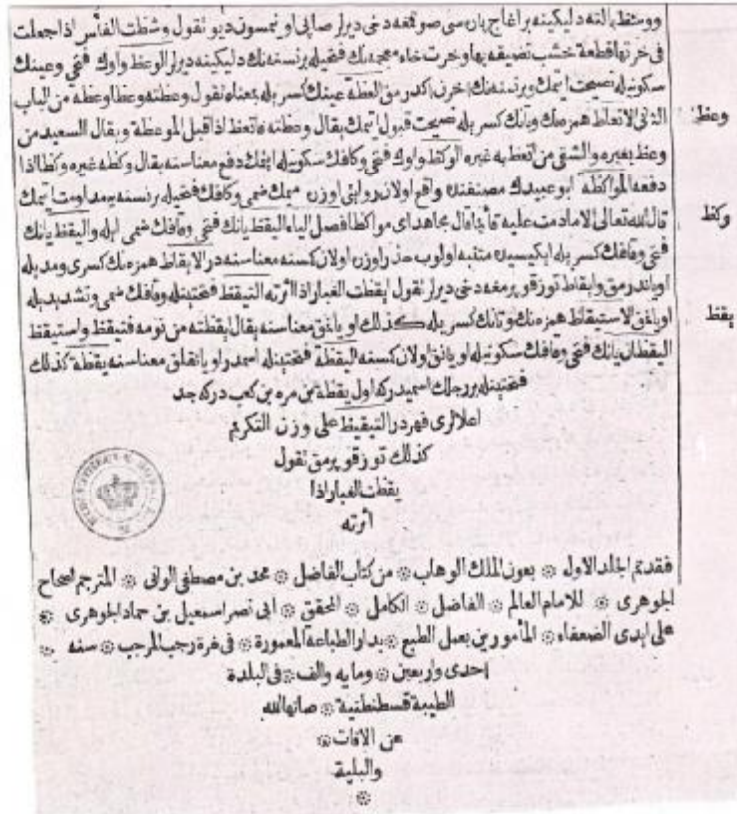 فى خرتها قطعة خشب تضيقه بها وخرت خاء معجمه نك فتحيله برنسنه نك دليكينه ديرلر الوعظ واوك فتحى وعينك
سكونيله نصيحت ايتمك وبرنسنه نك اخرن اكدرمق العظة عينك كسريله بمعناه تقول وعظته وعظا وعظة من الباب
الثانى الاتعاظ همزه نك وتانك كسريله نصيحت قبول ايتمك يقال وعظته فاتعظ اذا قبل الموعظة ويقال السعيد من
وعظ بغيره والشقى من اتعظ به غيره الوكظ واوك فتحى وكافك سكونيله دفع معناسنه يقال وكظه غيره وكظا اذا
دفعه المواكظة ابو عبيدك مصنفنده واقع اولان روايتى اوزره ميمك ضمى وكافك فتحيله برنسنه يه مداومت ايتمك
قال الله تعالى الا ما دمت عليه قائما قال مجاهد اى مواكظا فصل الياء اليقظ يانك فتحى وقافك ضمى ايله واليقظ يانك
فتحى وقافك كسريله ايكيسيده متنبه اولوب حذر اوزره اولان كسنه معناسنه در الايقاظ همزه نك كسرى ومد يله
اوياندرمق وايقاظ توز قوپرمغه دخى ديرلر تقول ايقظت الغبار اذا اثرته التيقظ فتحتينله وقافك ضمى وتشديديله
اويانمق الاستيقاظ همزه نك وتانك كسريله كذلك اويانمق معناسنه يقال ايقظته من نومه فتيقظ واستيقظ
اليقظان يانك فتحى وقافك سكونيله اويانق اولان كسنه اليقظة فتحتينله اسمدر اويانقلق معناسنه يقظة كذلك
فتحتينله بر رجلك اسميدركه اول يقظة بن مره بن كعب دركه جد
اعلالرى فهردر التيقيظ على وزن التكريم
كذلك توز قوپرمق تقول
يقظت الغبار اذا
اثرته
وعظ
وكظ
يقظ
فقد تم الجلد الاول ۞ بعون الملك الوهاب ۞ من كتاب الفاضل ۞ محمد بن مصطفى الوانى ۞ المترجم لصحاح
الجوهرى ۞ للامام العالم ۞ الفاضل ۞ الكامل ۞ المحقق ۞ ابى نصر اسمعيل بن حماد الجوهرى ۞
على ايدى الضعفاء ۞ المأمورين بعمل الطبع ۞ بدار الطباعه المعمورة ۞ فى غرة رجب المرجب ۞ سنه ۞
احدى واربعين ۞ ومايه والف ۞ فى البلدة
الطيبة قسطنطنية ۞ صانها الله
عن الافات ۞
والبلية
۞